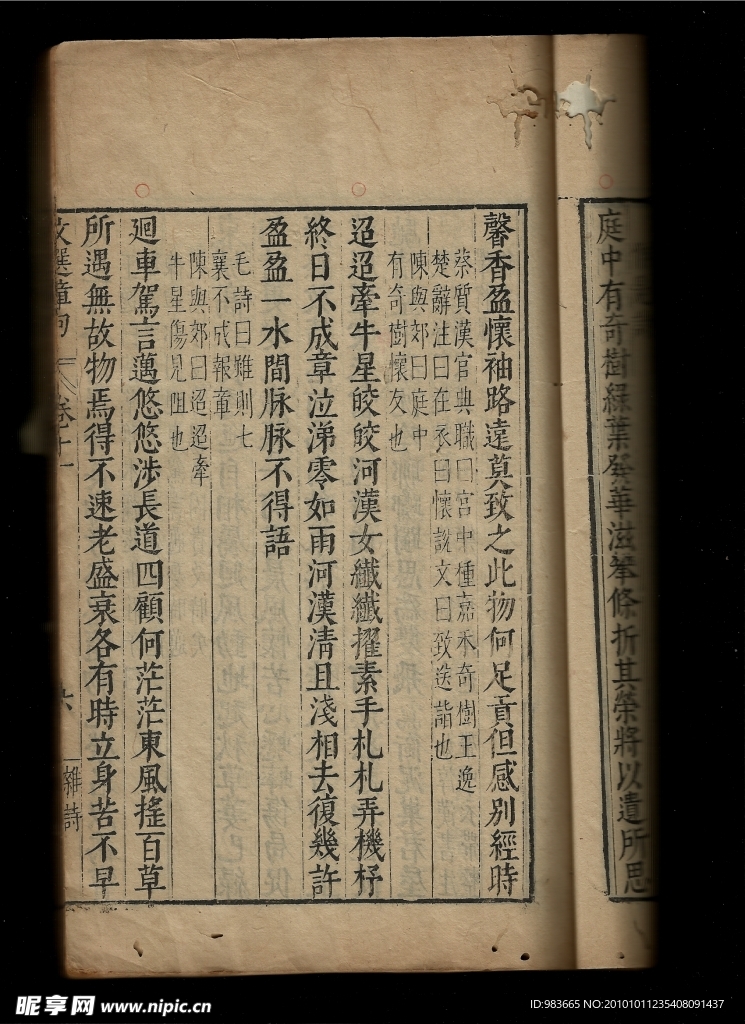 庭中有奇樹綠葉發華滋攀條折其榮將以遺所思
馨香盈懷袖路遠莫致之此物何足貢但感別經時
蔡質漢官典職曰宮中種嘉禾奇樹王逸
楚辭注曰在衣曰懷說文曰致送詣也
陳與郊曰庭中
有奇樹懷友也
迢迢牽牛星皎皎河漢女纖纖擢素手札札弄機杼
終日不成章泣涕零如雨河漢清且淺相去復幾許
盈盈一水間脉脉不得語
毛詩曰雖則七
襄不成報章
陳與郊曰迢迢牽
牛星傷見阻也
迴車駕言邁悠悠涉長道四顧何茫茫東風搖百草
所遇無故物焉得不速老盛衰各有時立身苦不早
文選章句 卷十一 六 雜詩
昵享网 www.nipic.cn
ID:983665 NO:20101011235408091437